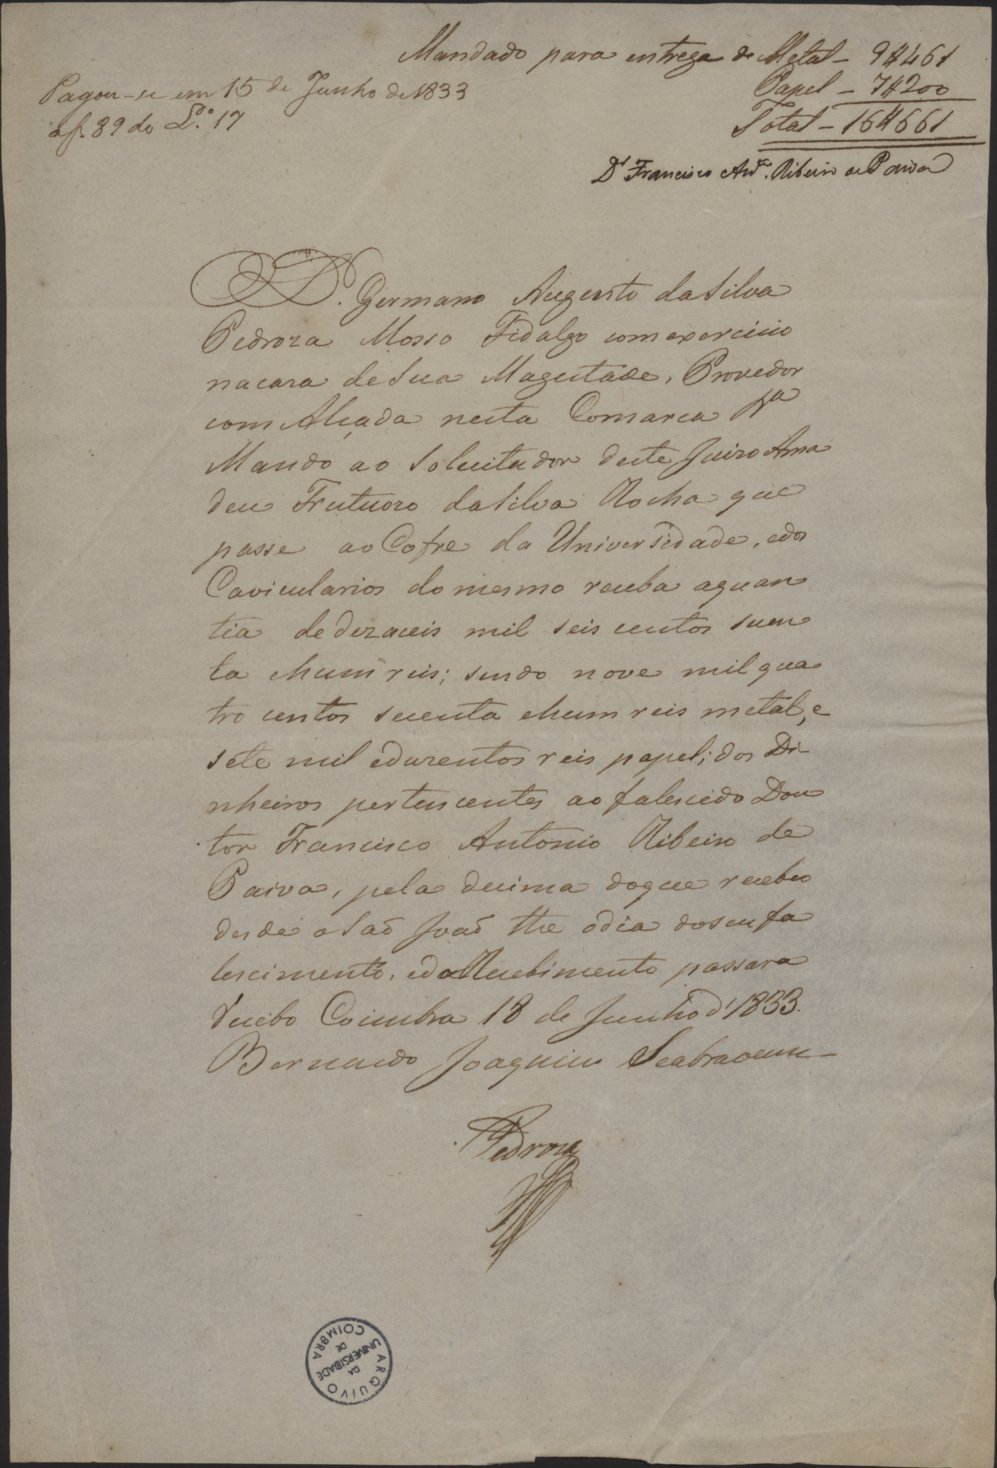 Mandado para entrega de Metal – 9$461
Papel – 7$200
Total – 16$661
Pagou-se em 15 de Junho de 1833
a f. 89 do L.º 17
Dr Francisco Antº. Ribeiro de Paiva
D. Germano Augusto da Silva
Pedroza Mosso Fidalgo com exercicio
na caza de Sua Magestade, Provedor
com Alçada nesta Comarca Va
Mando ao Solicitador deste Juizo Ama
deu Frutuozo da Silva Rocha que
passe ao Cofre da Universidade, edos
Cavicularios do mesmo receba aquan
tia de dezaceis mil seis centos secen
ta ehum reis; sendo nove mil qua
tro centos secenta ehum reis metal, e
sete mil eduzentos reis papel; dos Di
nheiros pertencentes ao falescido Dou
tor Francisco Antonio Ribeiro de
Paiva, pela decima doque recebeo
desde o Saõ Joaõ the odia doseu fa
lescimento, edo Recebimento passara
recibo Coimbra 18 de Junho d' 1833.
Bernardo Joaquim Seabra
Pedroza
ARQUIVO
DA
UNIVERSIDADE
DE
COIMBRA